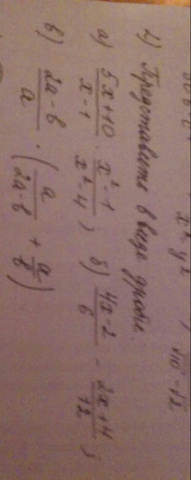 x²-y² ; √10-√2
2) Представьте в виде дроби.
а) \frac{5x+10}{x-1} · \frac{x²-1}{x²-4} ; б) \frac{4x-2}{6} - \frac{2x+4}{12} ;
в) \frac{2a-b}{a} · (\frac{a}{2a-b} + \frac{a}{b})